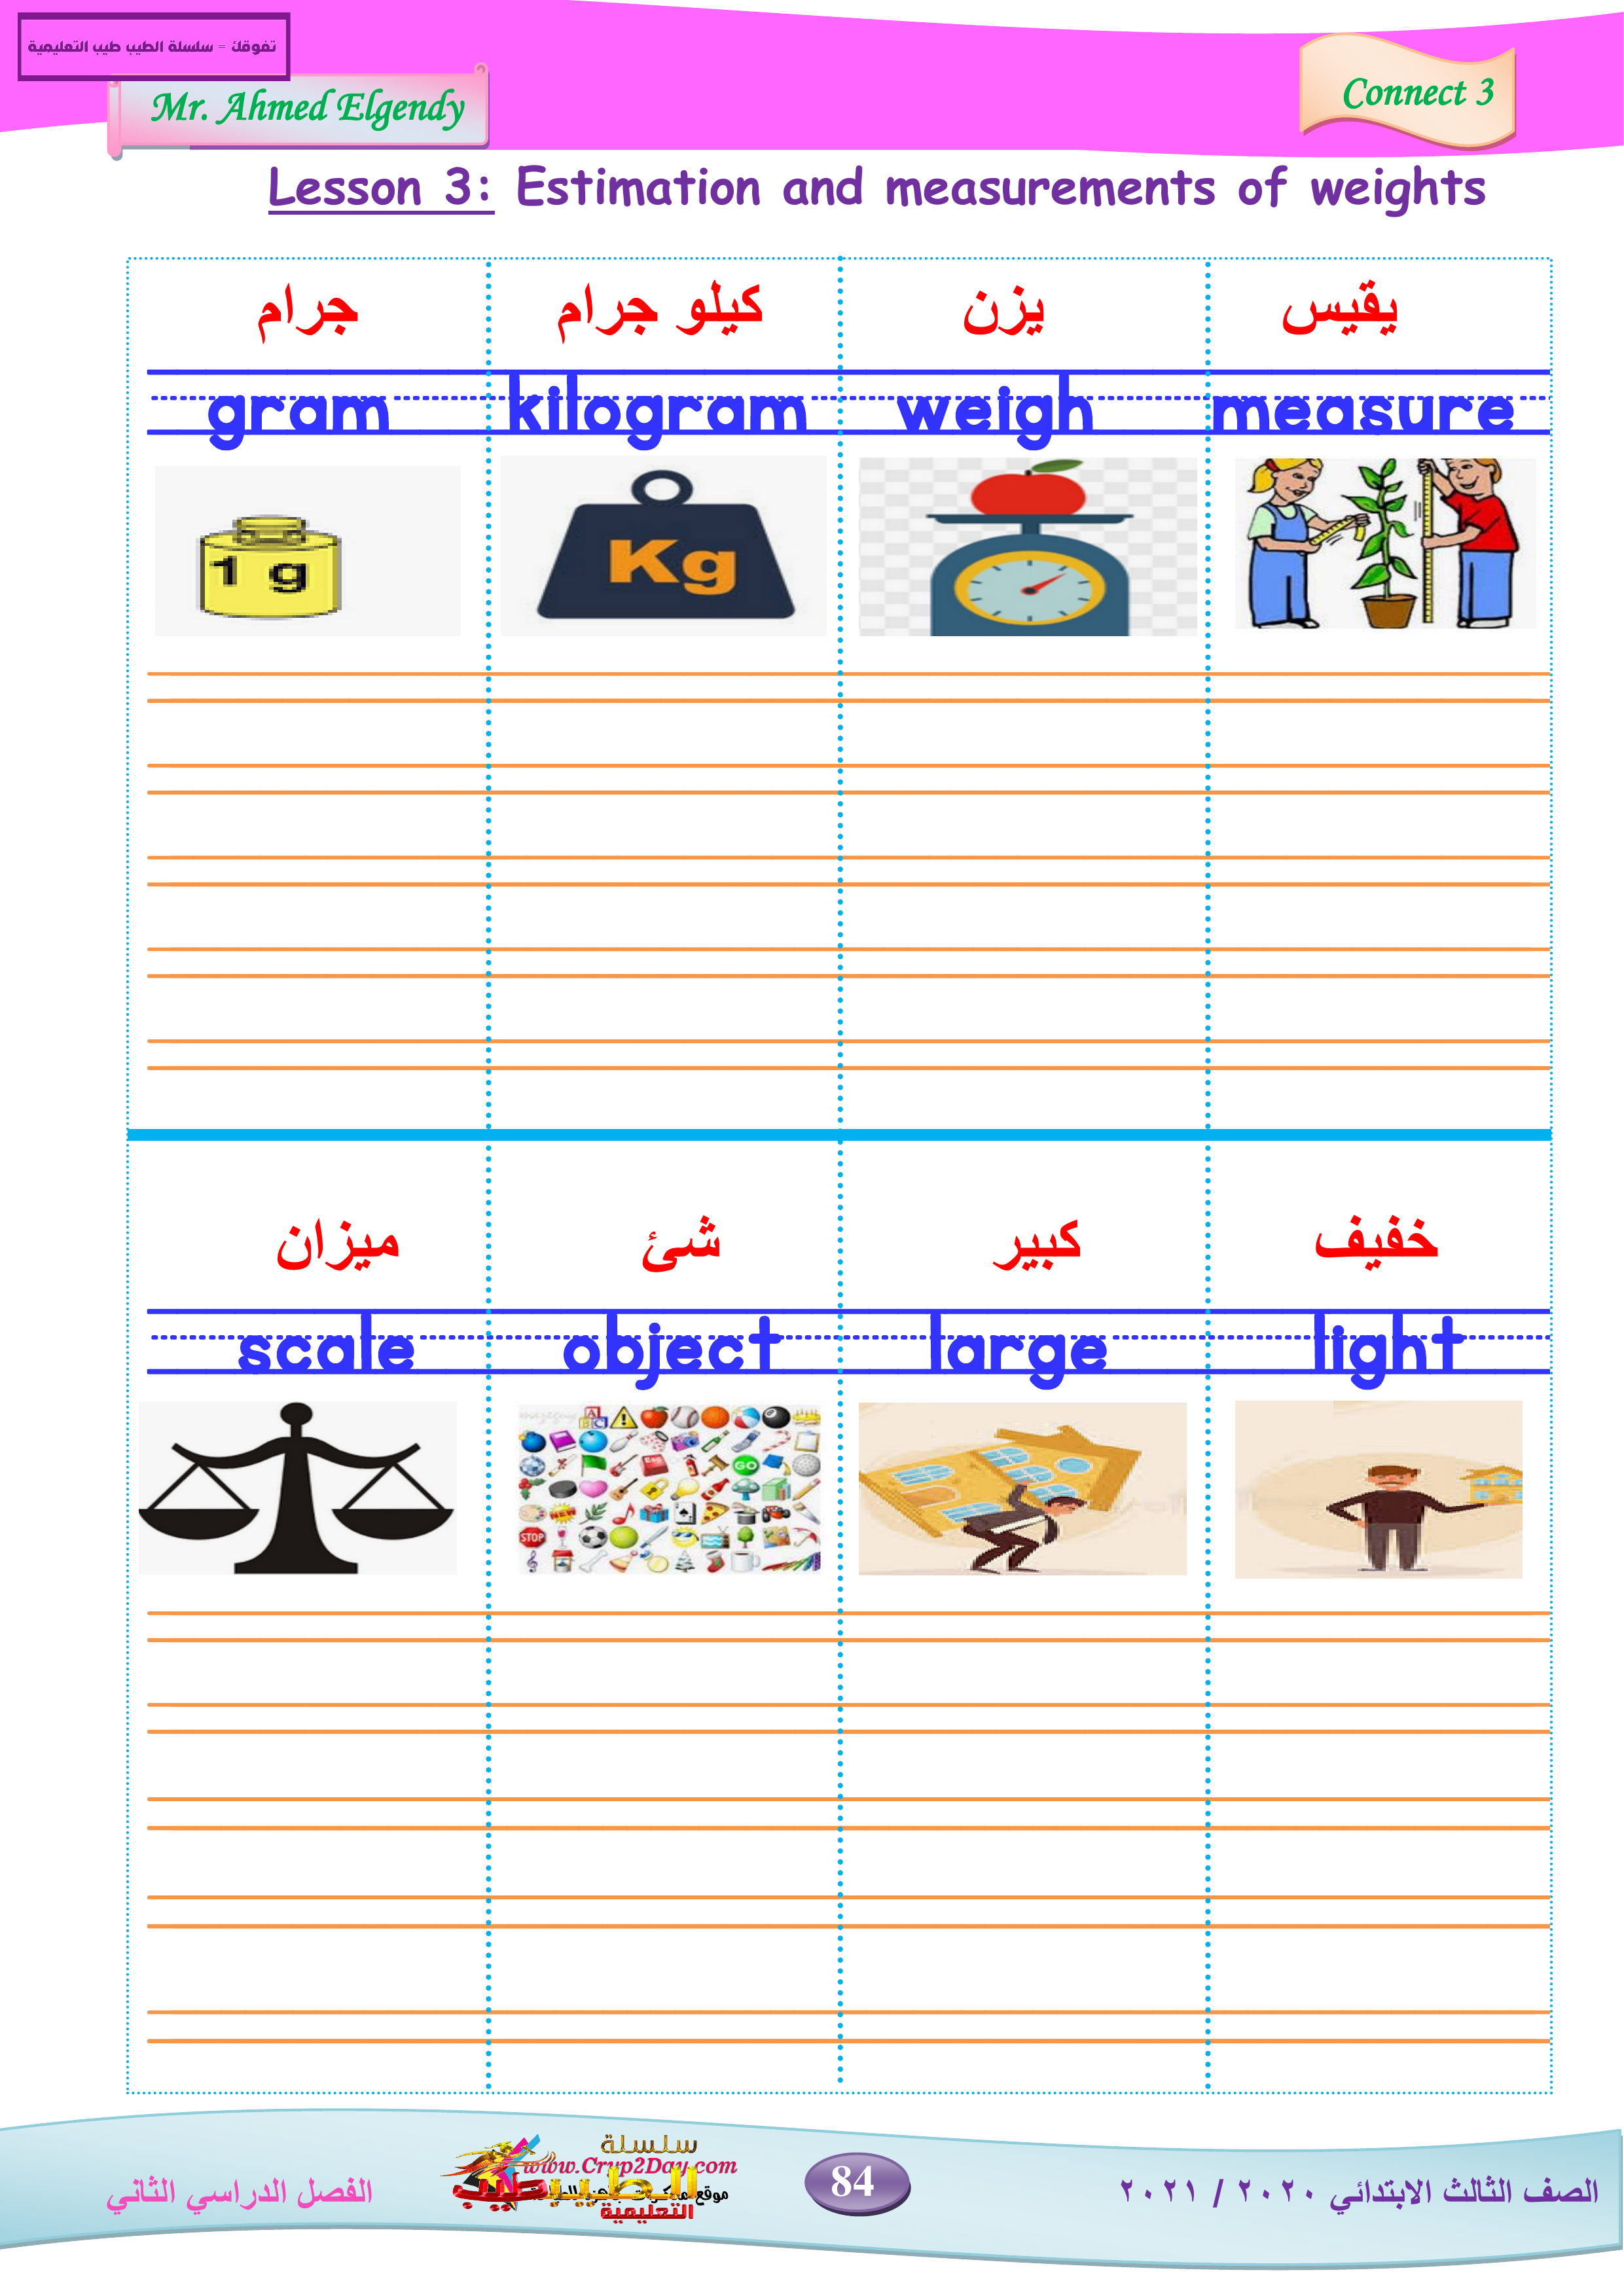 تفوقك = سلسلة الطيب طيب التعليمية
Mr. Ahmed Elgendy
Connect 3
Lesson 3: Estimation and measurements of weights
جرام كيلو جرام يزن يقيس
gram kilogram weigh measure
1 g
Kg
ميزان شئ كبير خفيف
scale object large light
GO
STOP
سلسلة
www.Cryp2Day.com
التعليمية
الفصل الدراسي الثاني
84
الصف الثالث الابتدائي ٢٠٢٠ / ٢٠٢١